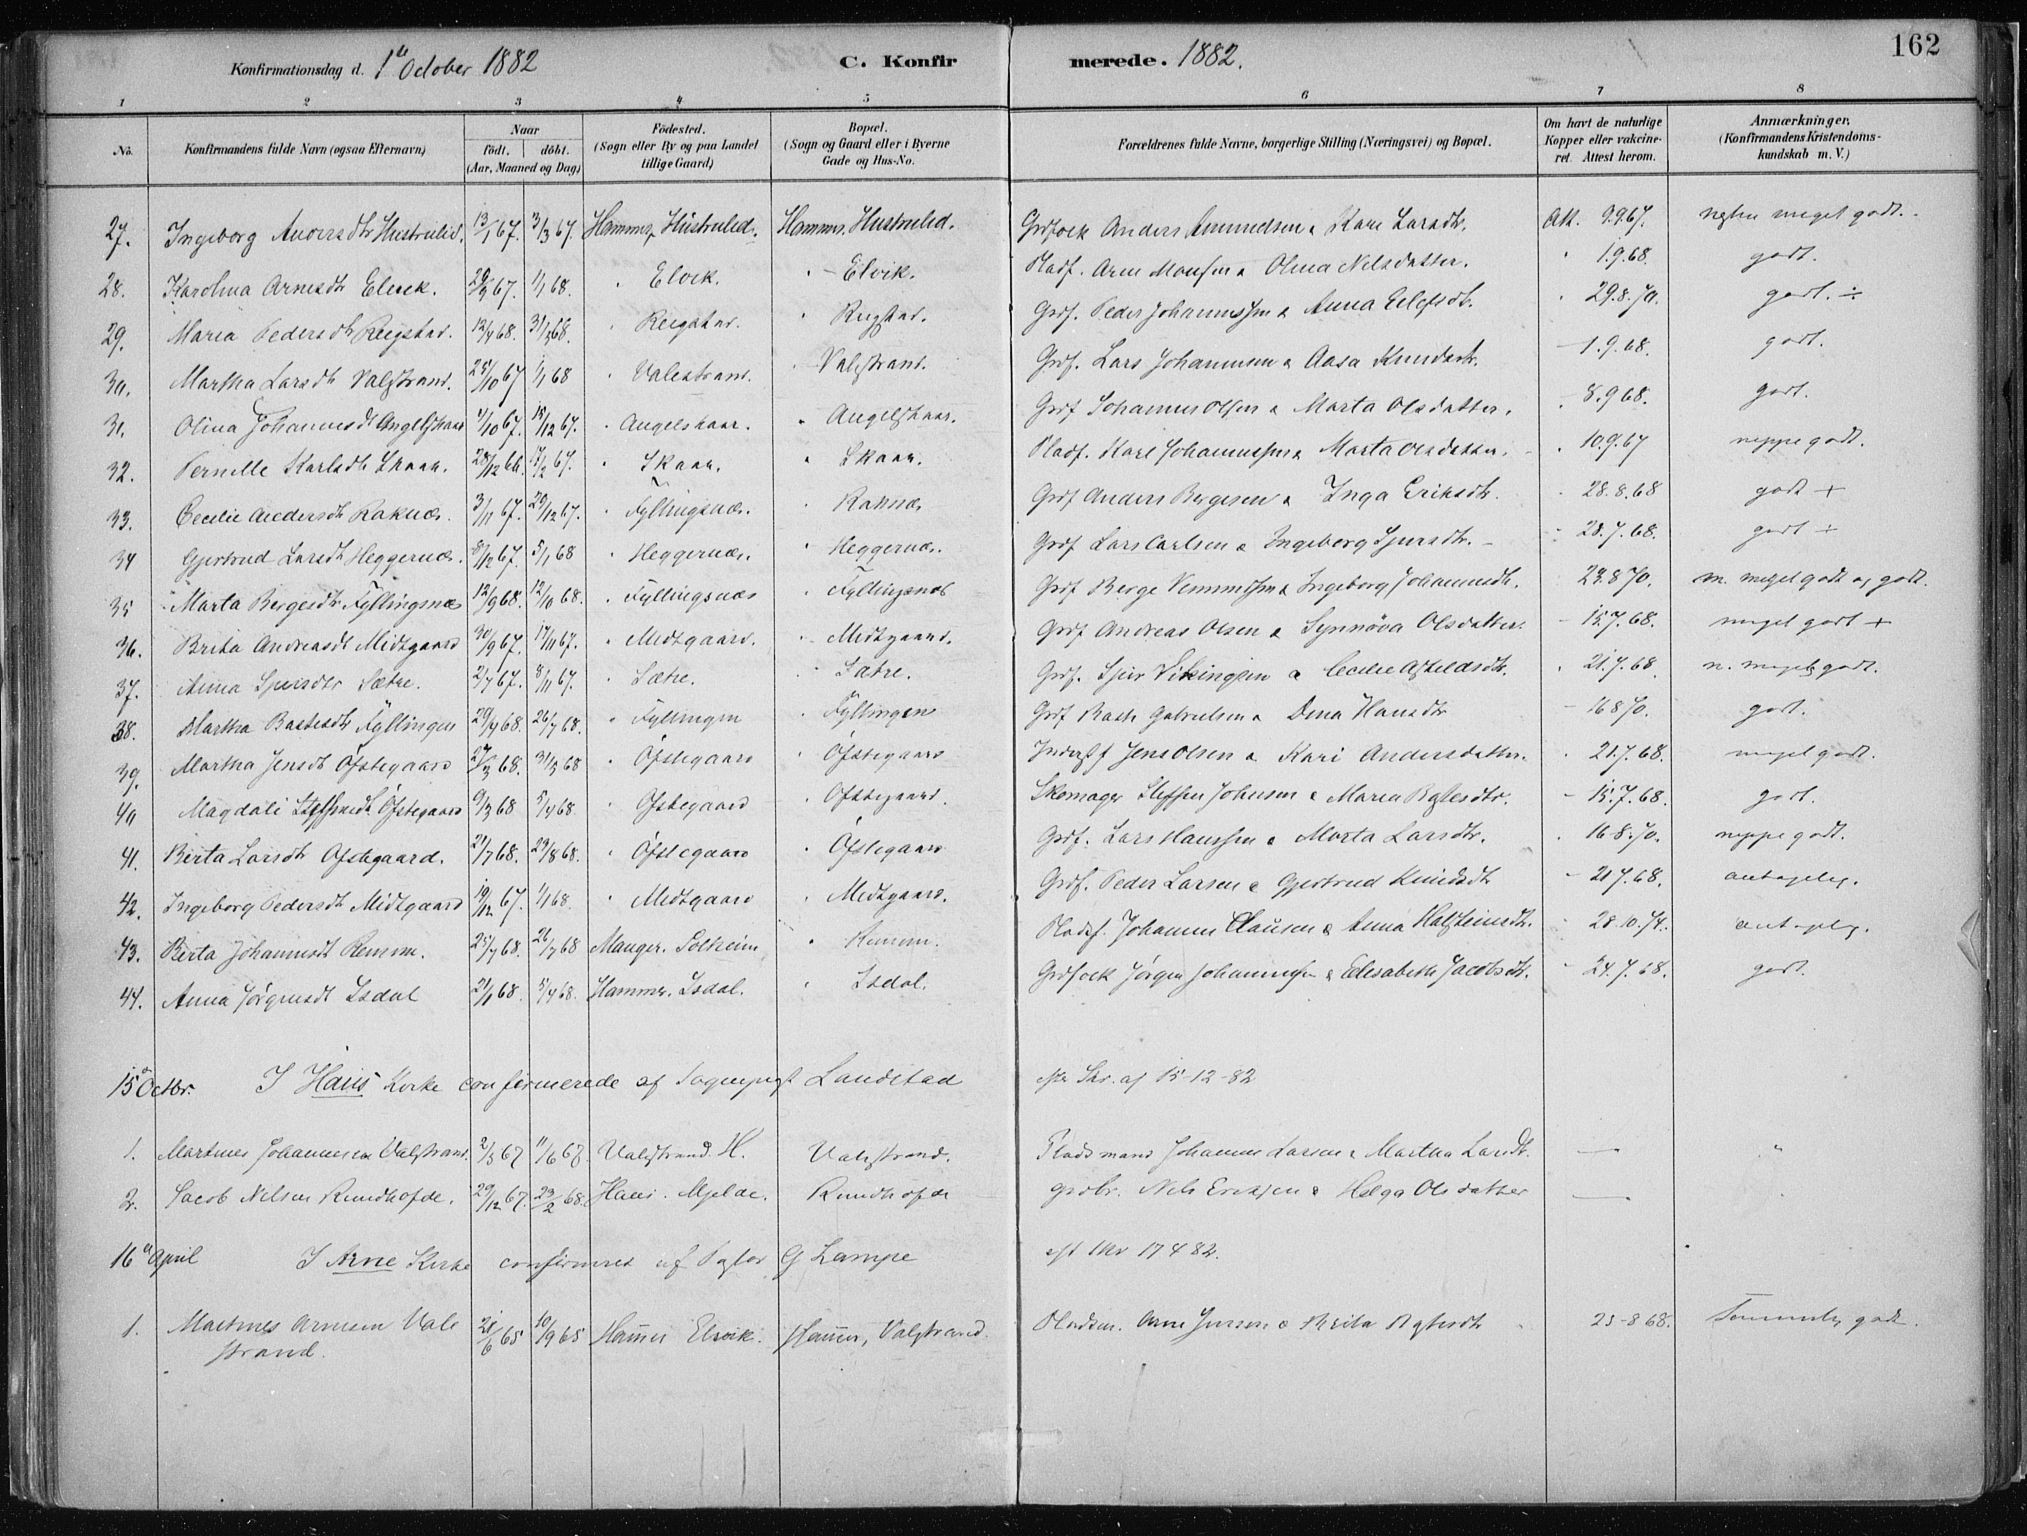 162
Konfirmationsdag d. 1ste October 1882 C. Konfirmerede. 1882.
1 2 3 4 5 6 7 8
No. Konfirmandens fulde Navn (ogsaa Efternavn) Naar födt. döbt. (Aar, Maaned og Dag) Födested. (Sogn eller By og paa Landet tillige Gaard) Bopæl. (Sogn og Gaard eller i Byerne Gade og Hus-No. Forældrenes fulde Navne, borgerlige Stilling (Næringsvei) og Bopæl. Om havt de naturlige Kopper eller vakcineret. Attest herom. Anmærkninger, (Konfirmandens Kristendomskundskab m. V.)
27. Ingeborg Andersdtr Hustrulid. 13/1 67. 3/3 67. Hammer, Hustrulid. Hammer. Hustrulid. Anders Amundsen & Kari Larsdtr. Att. 9.9.67. meget godt.
28. Karolina Arnesdtr Elvik. 67. 1/1 68. " Elvik. " Elvik. Pladf. Arne Monsen & Olina Nilsdatter. " 1.9.68. godt.
29. Maria Pedersdtr Reigstad. 12/4 68. 31/5 68. " Reigstad. " Reigstad. Grdf. Peder Johannessen & Anna " 29.8.70. godt. ÷
30. Martha Larsdtr Valestrand. 25/10 67 1/1 68 " Valestrand. " Valestrand. Grdf. Lars Johannesen & Aasa Knudsdtr. — 1.9.68. godt.
31. Olina Johannesdt Angelskaar 4/10 67. 15/12 67. " Angelskaar. " Angelskaar. Grdf Johannes Olsen & Marta Olsdatter. " 8.9 68. godt.
32. Pernille Karlsdtr Skaar. 28/12 66. 17/2 67. " Skaar. " Skaar. Pladf. Karl Johannessen & Marta Olsdatter. " 10.9.67 neppe godt.
33. Cecilie Andersdtr Raknæs. 3/11 67. 29/12 67. " Fyllingsnæs. " Raknæs Grdf Anders Bergesen & Inga Eriksdtr. " 28.8.68 godt +
34 Gjertrud Larsdtr Heggernæs. 8/12 67. 5/1 68 " Heggernæs. " Heggernæs. Grdf Lars Carlsen & Ingeborg Sjursdtr. — 28.7.68. godt +
35 Marta Bergesdtr Fyllingsnæs 12/9 68. 12/10 68. " Fyllingsnæs " Fyllingsnæs Grdf Berge & Ingeborg Johannesdtr. " 23.8 70. n. meget godt og godt.
36. Brita Andreasdt Midtgaard 30/9 67. 17/11 67. " Midtgaard. " Midtgaard. Grdf Andreas Olsen & Synnöva Olsdatter. — 15.7.68. meget godt +
37. Anna Sjursdtr Sætre. 2/7 67. 8/11 67. " Sætre. " Sætre. Grdf. Sjur Vikingsen & Cecilie " 21.7.68 n. meget godt.
38. Martha Bastesdtr Fyllingen 29/4 68. 26/7 68. " Fyllingen " Fyllingen Grdf Baste Gabrielsen & Dina Hansdtr — 16 8 70. godt.
39. Martha Jensdt Öfstegaard 27/3 68. 31/5 68 " Öfstegaard " Öfstegaard Jens Olsen & Kari Andersdatter. " 21.7.68. meget godt.
40 Magdali Steffensdt Öfstegaard 9/3 68 5/4 68. " Öfstegaard " Öfstegaard. Skomager Steffen Johnsen & Maria — 15.7.68. godt.
41. Berta Larsdtr Öfstegaard. 21/7 68. 23/8 68. " Öfstegaard " Öfstegaard Grdf. Lars Hanssen & Marta Larsdtr. " 16.8.70. neppe godt.
42. Ingeborg Pedersdtr Midtgaard 19/12 67. 1/1 68. " Midtgaard " Midtgaard. Grdf. Peder Larsen & Gjertrud Knudsdt — 21.7.68. antagelig.
43. Berta Johannesdt Remme. 25/7 68. 26/7 68 Manger. Solheim " Remme. Pladsf. Johannes Clausen & Anna Halsteinsdtr. — 28.10.74. antagelig.
44. Anna Jörgensdt Isdal 21/1 68. 5/4 68. Hammer. Isdal. " Isdal. Jörgen Johannessen & Elisabeth Jacobsdtr. — 24.7.68. godt.
15de Octbr. I Haus Kirke confirmerede af Sogneprest Landstad efter Skr. af 15-12-82
1. Martines Johannesen Valestrand. 2/5 67 11/6 67. Valestrand. H. Valestrand. Pladsmand Johannes Larsen & Martha Larsdtr. — "
2. Jacob Nilsen Rundhofde. 29/12 67. 23/2 68. Haus. Mjelde. Rundhofde Grdbr. Nils Eriksen & Helga Olsdatter — "
16de April I Arne Kirke confirmeret af Pastor G Lampe eft Skr 17 4 82.
1. Martines Arnesen Valestrand. 21/6 65 10/9 65 Hamer Elvik. Hamer, Valestrand. Pladsm. Arne Jensen & Brita " 25-8 68. Temmelig godt.